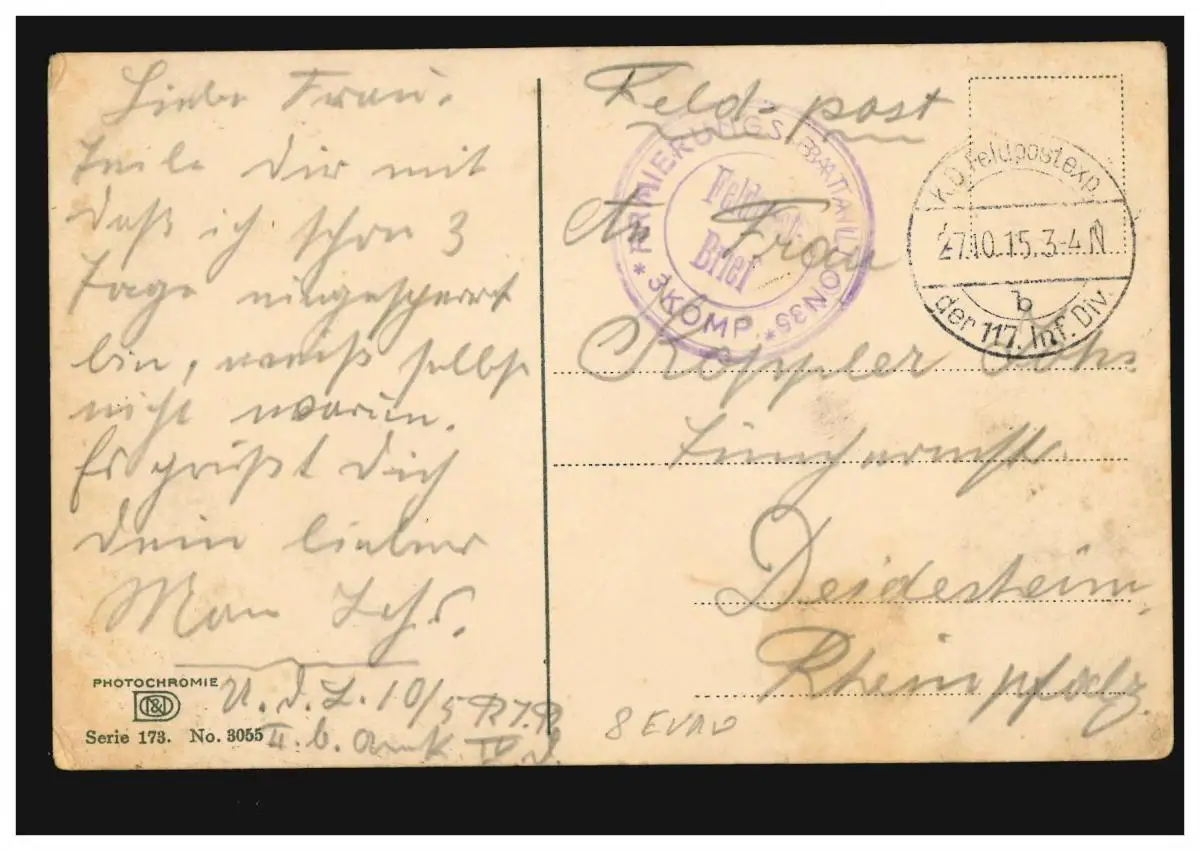 Liebe Frau.
Teile Dir mit
daß ich schon 3
Tage eingesperrt
bin, weiß selbst
nicht warum.
Es grüßt Dich
Dein lieber
Man Johs.
PHOTOCHROMIE
Serie 173. No. 3055
Feld-post
ARMIERUNGS-BATAILLON 35
* 3 KOMP. *
Feldpost-
Brief
K.D. Feldpostexp.
27.10.15. 3-4 N
b
der 117. Inf. Div.
An Frau
Köppler Johs
Deidesheim,
Rheinpfalz